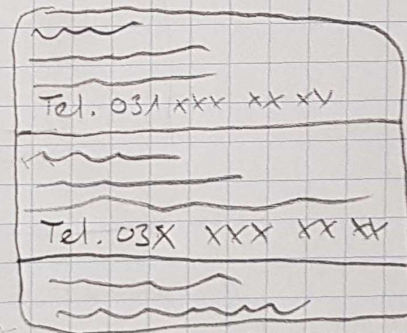 Tel. 031 xxx xx xy
Tel. 03x xxx xx xx